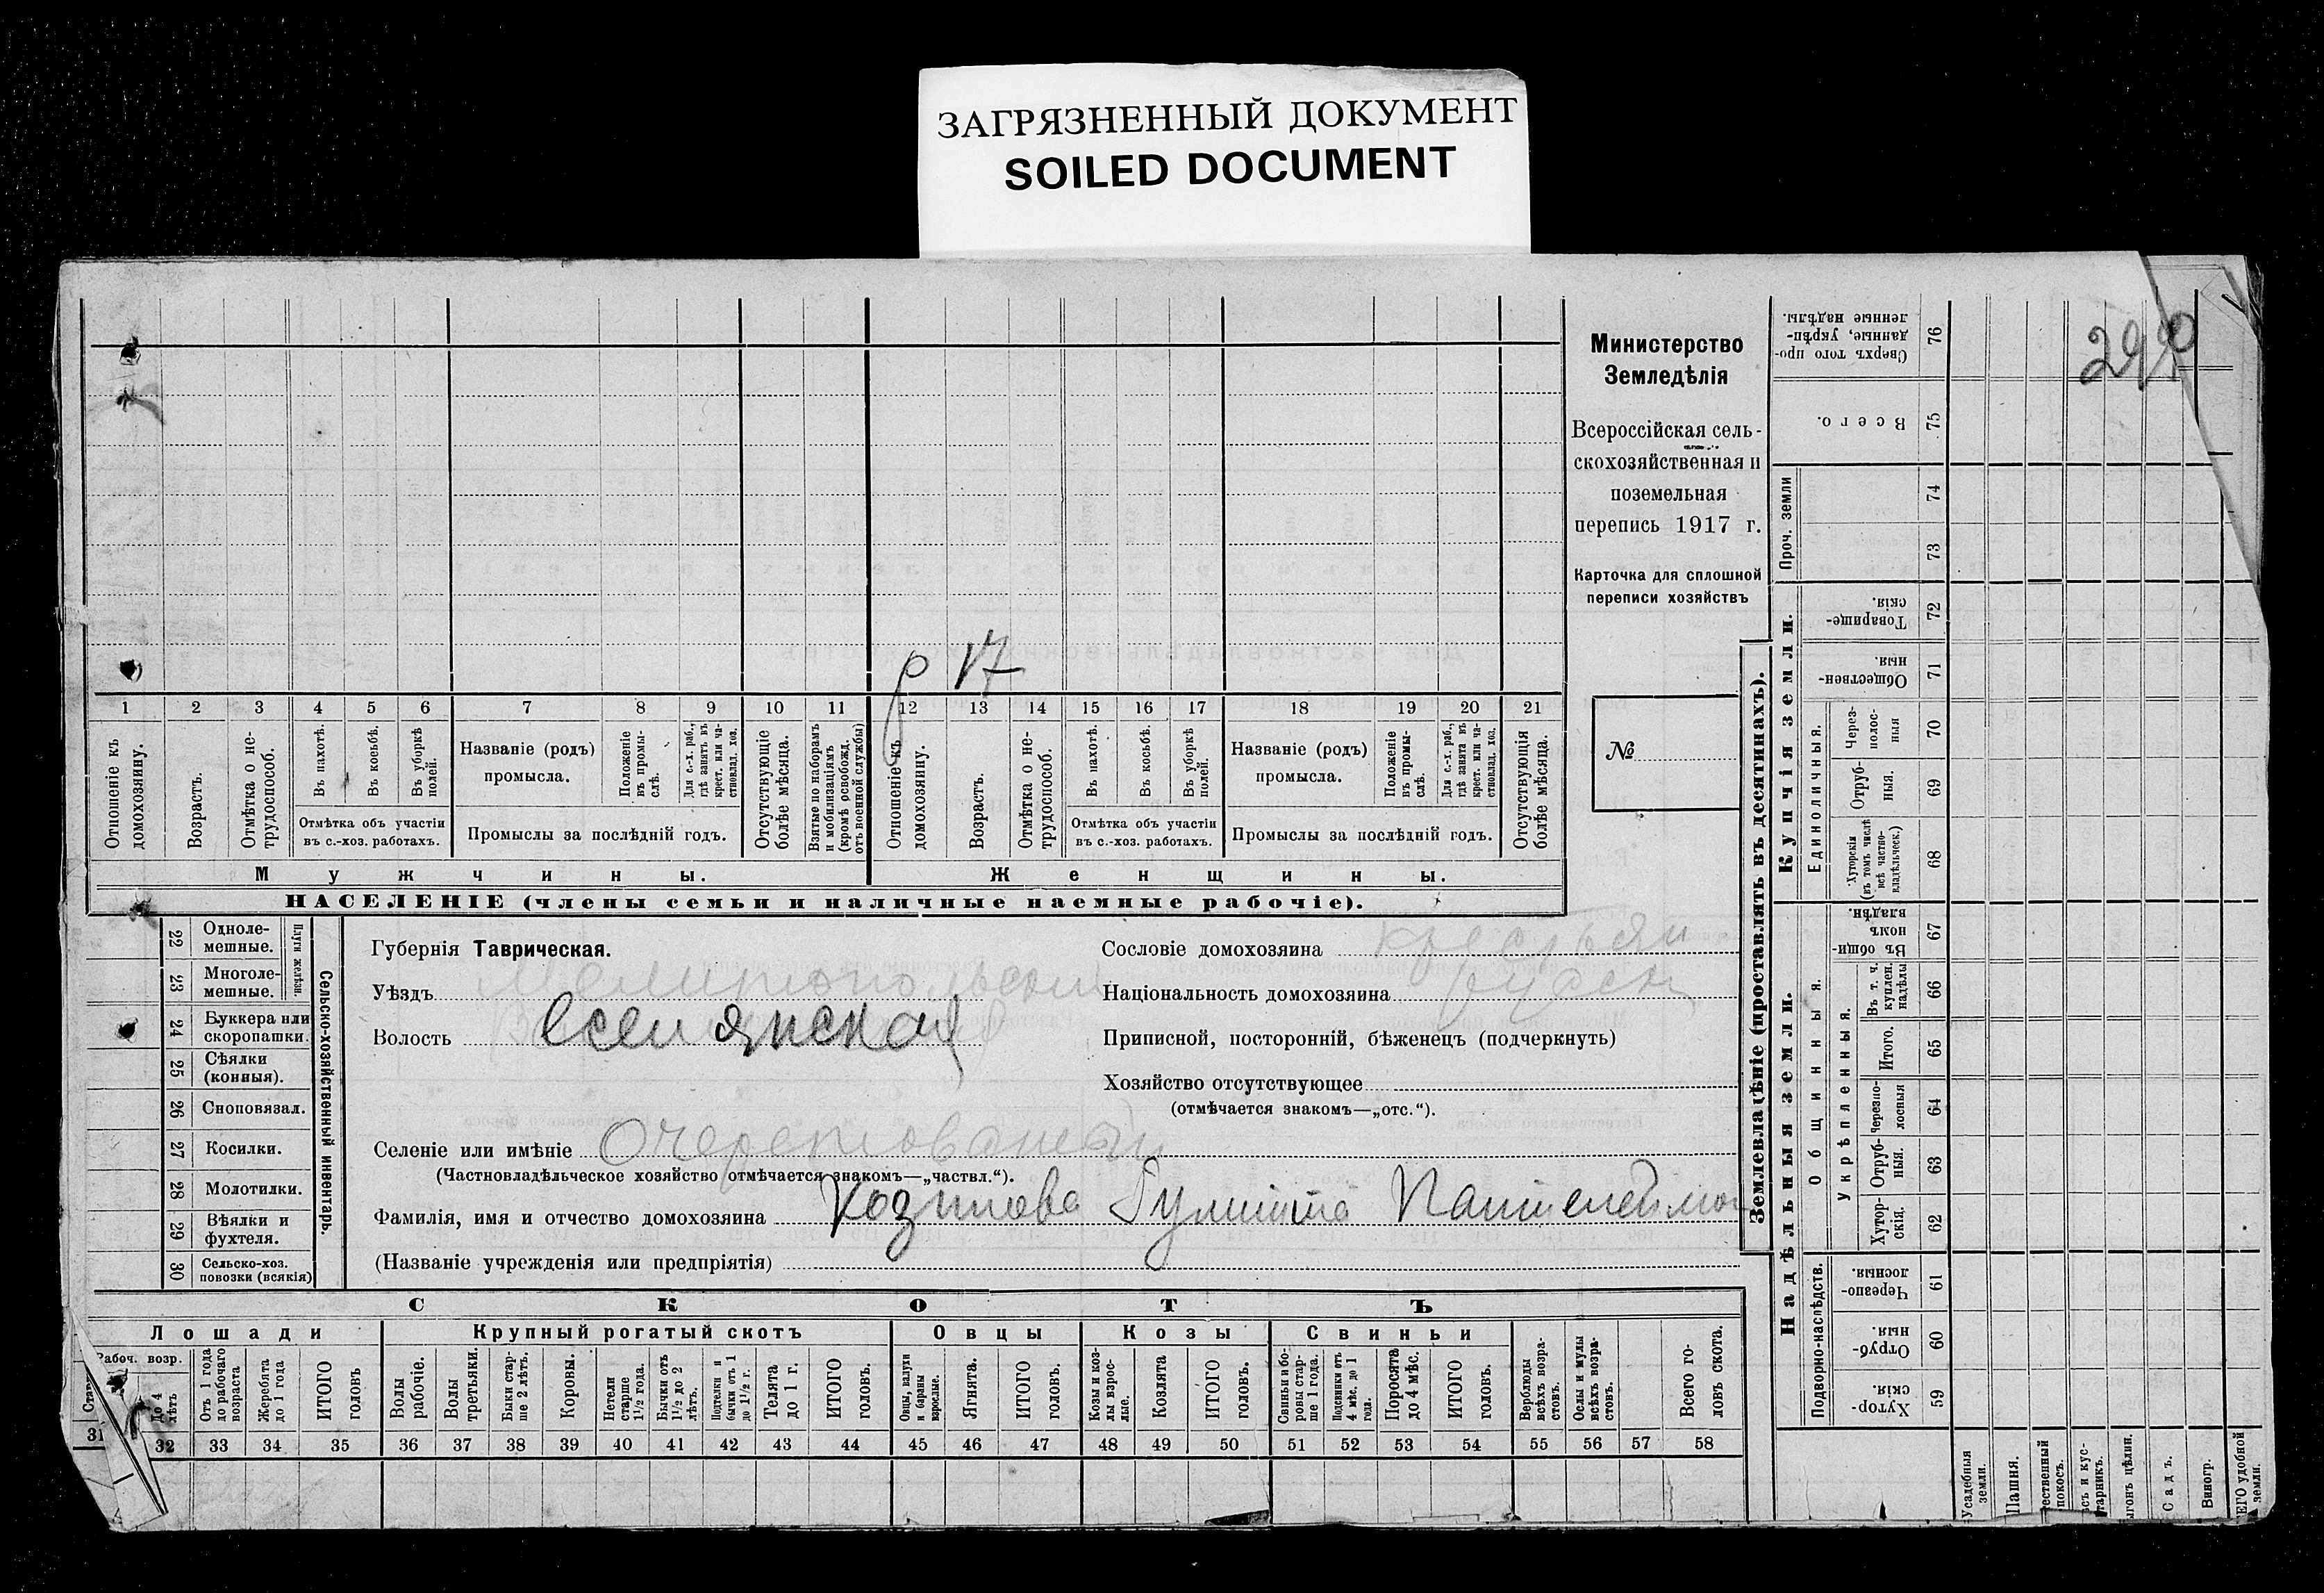 ЗАГРЯЗНЕННЫЙ ДОКУМЕНТ
SOILED DOCUMENT
Министерство
Земледѣлія
Всероссійская сель-
скохозяйственная и
поземельная
перепись 1917 г.
Карточка для сплошной
переписи хозяйствъ
№
р 17
1 2 3 4 5 6 7 8 9 10 11 12 13 14 15 16 17 18 19 20 21
Отношеніе къ домохозяину.
Возрастъ.
Отмѣтка о не-трудоспособ.
Въ пахотѣ.
Въ косьбѣ.
Въ уборкѣ полей.
Отмѣтка объ участіи
въ с.-хоз. работахъ.
Названіе (родъ)
промысла.
Положеніе въ промы-слѣ.
Для с.-х. раб., гдѣ занятъ въ крест. или ча-стновлад. хоз.
Промыслы за послѣдній годъ.
Отсутствующіе болѣе мѣсяца.
Взятые по наборамъ и мобилизаціямъ (кромѣ освобожд. отъ военной службы)
Отношеніе къ домохозяину.
Возрастъ.
Отмѣтка о не-трудоспособ.
Въ пахотѣ.
Въ косьбѣ.
Въ уборкѣ полей.
Отмѣтка объ участіи
въ с.-хоз. работахъ.
Названіе (родъ)
промысла.
Положеніе въ промы-слѣ.
Для с.-х. раб., гдѣ занята въ крест. или ча-стновлад. хоз.
Промыслы за послѣдній годъ.
Отсутствующія болѣе мѣсяца.
Мужчины. Женщины.
НАСЕЛЕНІЕ (члены семьи и наличные наемные рабочіе).
22 Однолемешные.
23 Многолемешные.
Плуги желѣзн.
24 Буккера или скоропашки.
25 Сѣялки (конныя).
26 Сноповязал.
27 Косилки.
28 Молотилки.
29 Вѣялки и фухтеля.
30 Сельско-хоз. повозки (всякія)
Сельско-хозяйственный инвентарь.
Губернія Таврическая.
Уѣздъ Мелитопольскій
Волость
Селеніе или имѣніе
(Частновладѣльческое хозяйство отмѣчается знакомъ—„частвл.“).
Фамилія, имя и отчество домохозяина
(Названіе учрежденія или предпріятія)
Сословіе домохозяина крестьян
Національность домохозяина русск
Приписной, посторонній, бѣженецъ (подчеркнуть)
Хозяйство отсутствующее
(отмѣчается знакомъ—„отс.“).
СКОТЪ
Лошади Крупный рогатый скотъ Овцы Козы Свиньи
Рабоч. возр.
До 4 лѣтъ
Отъ 1 года до рабочаго возраста
Жеребята до 1 года
ИТОГО головъ
Волы рабочіе.
Волы третьяки.
Быки старше 2 лѣтъ.
Коровы.
Нетели старше 1½ года.
Бычки отъ 1½ до 2 лѣтъ.
Подтелки и бычки отъ 1 до 1½ г.
Телята до 1 г.
ИТОГО головъ.
Овцы, валухи и бараны взрослые.
Ягнята.
ИТОГО головъ.
Козы и козлы взрослые.
Козлята
ИТОГО головъ.
Свиньи и боровы старше 1 года.
Подсвинки отъ 4 мѣс. до 1 года.
Поросята до 4 мѣс.
ИТОГО головъ.
Верблюды всѣхъ возрастовъ.
Ослы и мулы всѣхъ возрастовъ.
Всего головъ скота.
31 32 33 34 35 36 37 38 39 40 41 42 43 44 45 46 47 48 49 50 51 52 53 54 55 56 57 58
Землевладѣніе (проставлять въ десятинахъ).
Надѣльныя земли. Купчія земли.
Подворно-наслѣдств. Общинныя.
Укрѣпленныя. Единоличныя. Проч. земли
Хуторскія. 59
Отрубныя. 60
Черезполосныя. 61
Хуторскія. 62
Отрубныя. 63
Черезполосныя 64
Итого. 65
Въ т. ч. куплен. надѣлы 66
Въ общинномъ владѣн. 67
Хуторскія (въ томъ числѣ всѣ частновладѣльческ.) 68
Отрубныя. 69
Черезполосныя 70
Общественныя. 71
Товарищескія. 72
73
74
Всего. 75
Сверхъ того проданные, укрѣпленные надѣлы. 76
Усадебныя земли.
Пашня.
Выгонъ цѣлин.
Садъ.
Виногр.